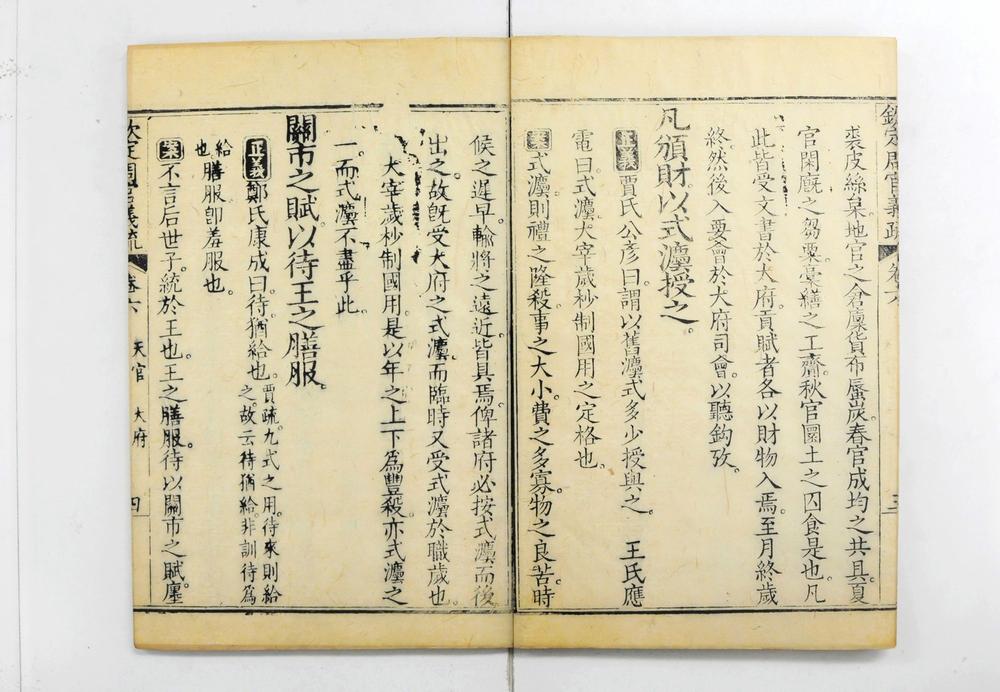 欽定周官義疏 卷六 三
裘皮絲枲地官之倉廩貨布蜃炭春官成均之共具夏
官閑廐之芻粟稾繕之工齎秋官圜土之囚食是也凡
此皆受文書於大府貢賦者各以財物入焉至月終歲
終然後入要會於大府司會以聽鈎攷
凡頒財以式灋授之
正義 賈氏公彥曰謂以舊灋式多少授與之 王氏應
電曰式灋大宰歲杪制國用之定格也
案 式灋則禮之隆殺事之大小費之多寡物之良苦時
候之遲早輸將之遠近皆具焉俾諸府必按式灋而後
出之故旣受大府之式灋而臨時又受式灋於職歲也
大宰歲杪制國用是以年之上下爲豐殺亦式灋之
一而式灋不盡乎此
關市之賦以待王之膳服
正義 鄭氏康成曰待猶給也賈疏九式之用待來則給
之故云待猶給非訓待爲
給也膳服卽羞服也
案 不言后世子統於王也王之膳服待以關市之賦廛
欽定周官義疏 卷六 天官 大府 四